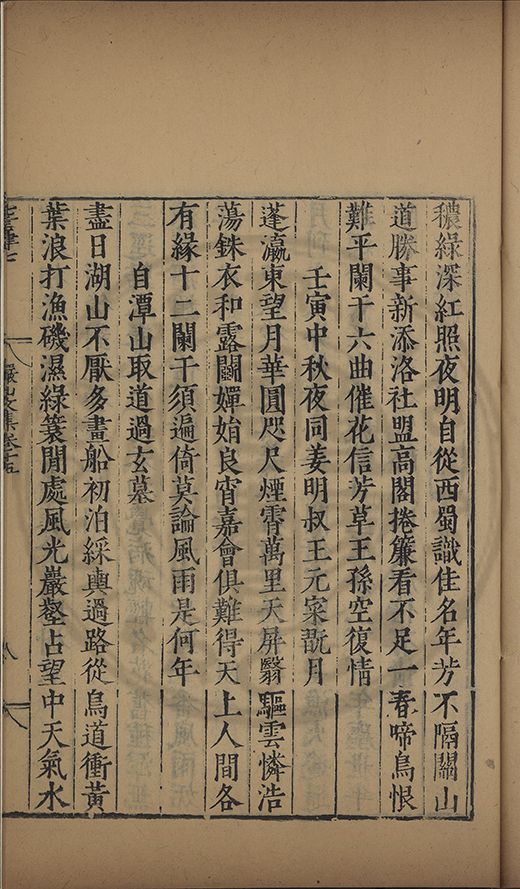 穠綠深紅照夜明自從西蜀識佳名年芳不隔關山
道勝事新添洛社盟高閣捲簾看不足一春啼鳥恨
難平闌干六曲催花信芳草王孫空復情
壬寅中秋夜同姜明叔王元寀翫月
蓬瀛東望月華圓咫尺煙霄萬里天屏翳驅雲憐浩
蕩銖衣和露鬬嬋娟良宵嘉會俱難得天上人間各
有緣十二闌干須遍倚莫論風雨是何年
自潭山取道過玄墓
盡日湖山不厭多畫船初泊綵輿過路從鳥道衝黃
葉浪打漁磯濕綠簑閒處風光巖壑占望中天氣水
七言律七
儼山文集卷十五
八